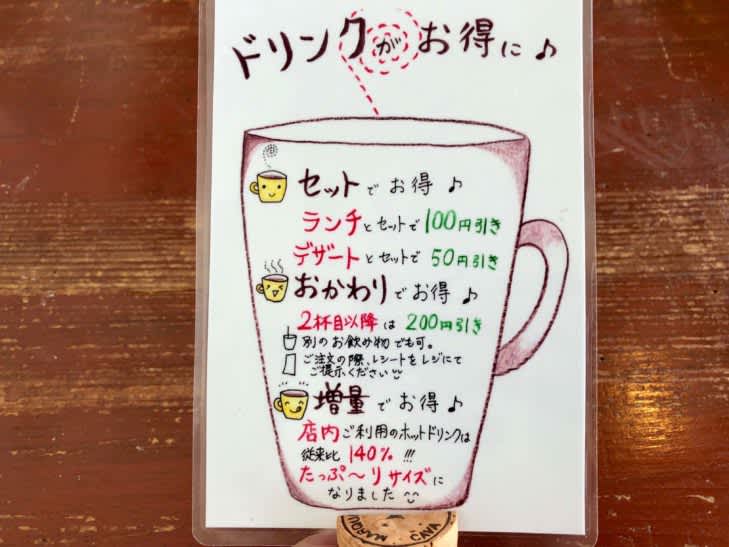 ドリンクがお得に♪
セットでお得♪
ランチとセットで100円引き
デザートとセットで50円引き
おかわりでお得♪
2杯目以降は200円引き
別のお飲み物でも可。
ご注文の際、レシートをレジにて
ご提示ください
増量でお得♪
店内ご利用のホットドリンクは
従来比140%!!!
たっぷ〜りサイズに
なりました
CAVA